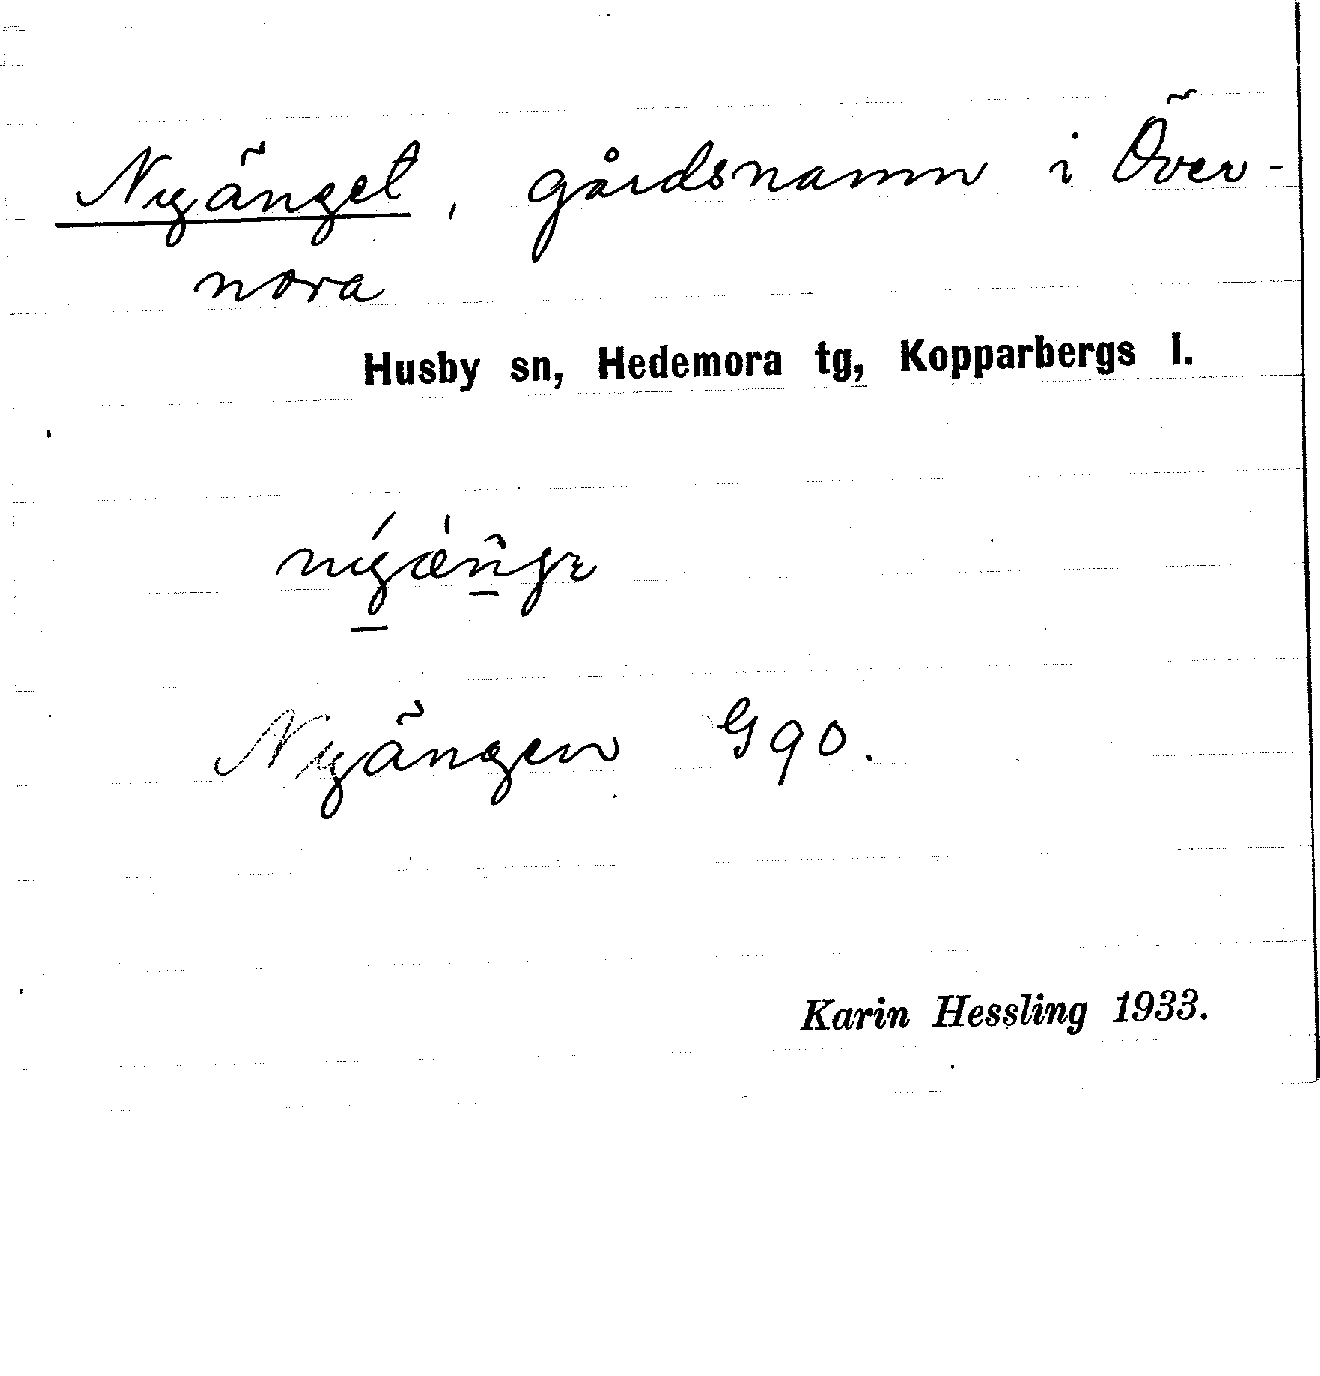 Nyänget, gårdsnamn i Över-
nora
Husby sn, Hedemora tg, Kopparbergs l.
Nyängen G 90.
Karin Hessling 1933.